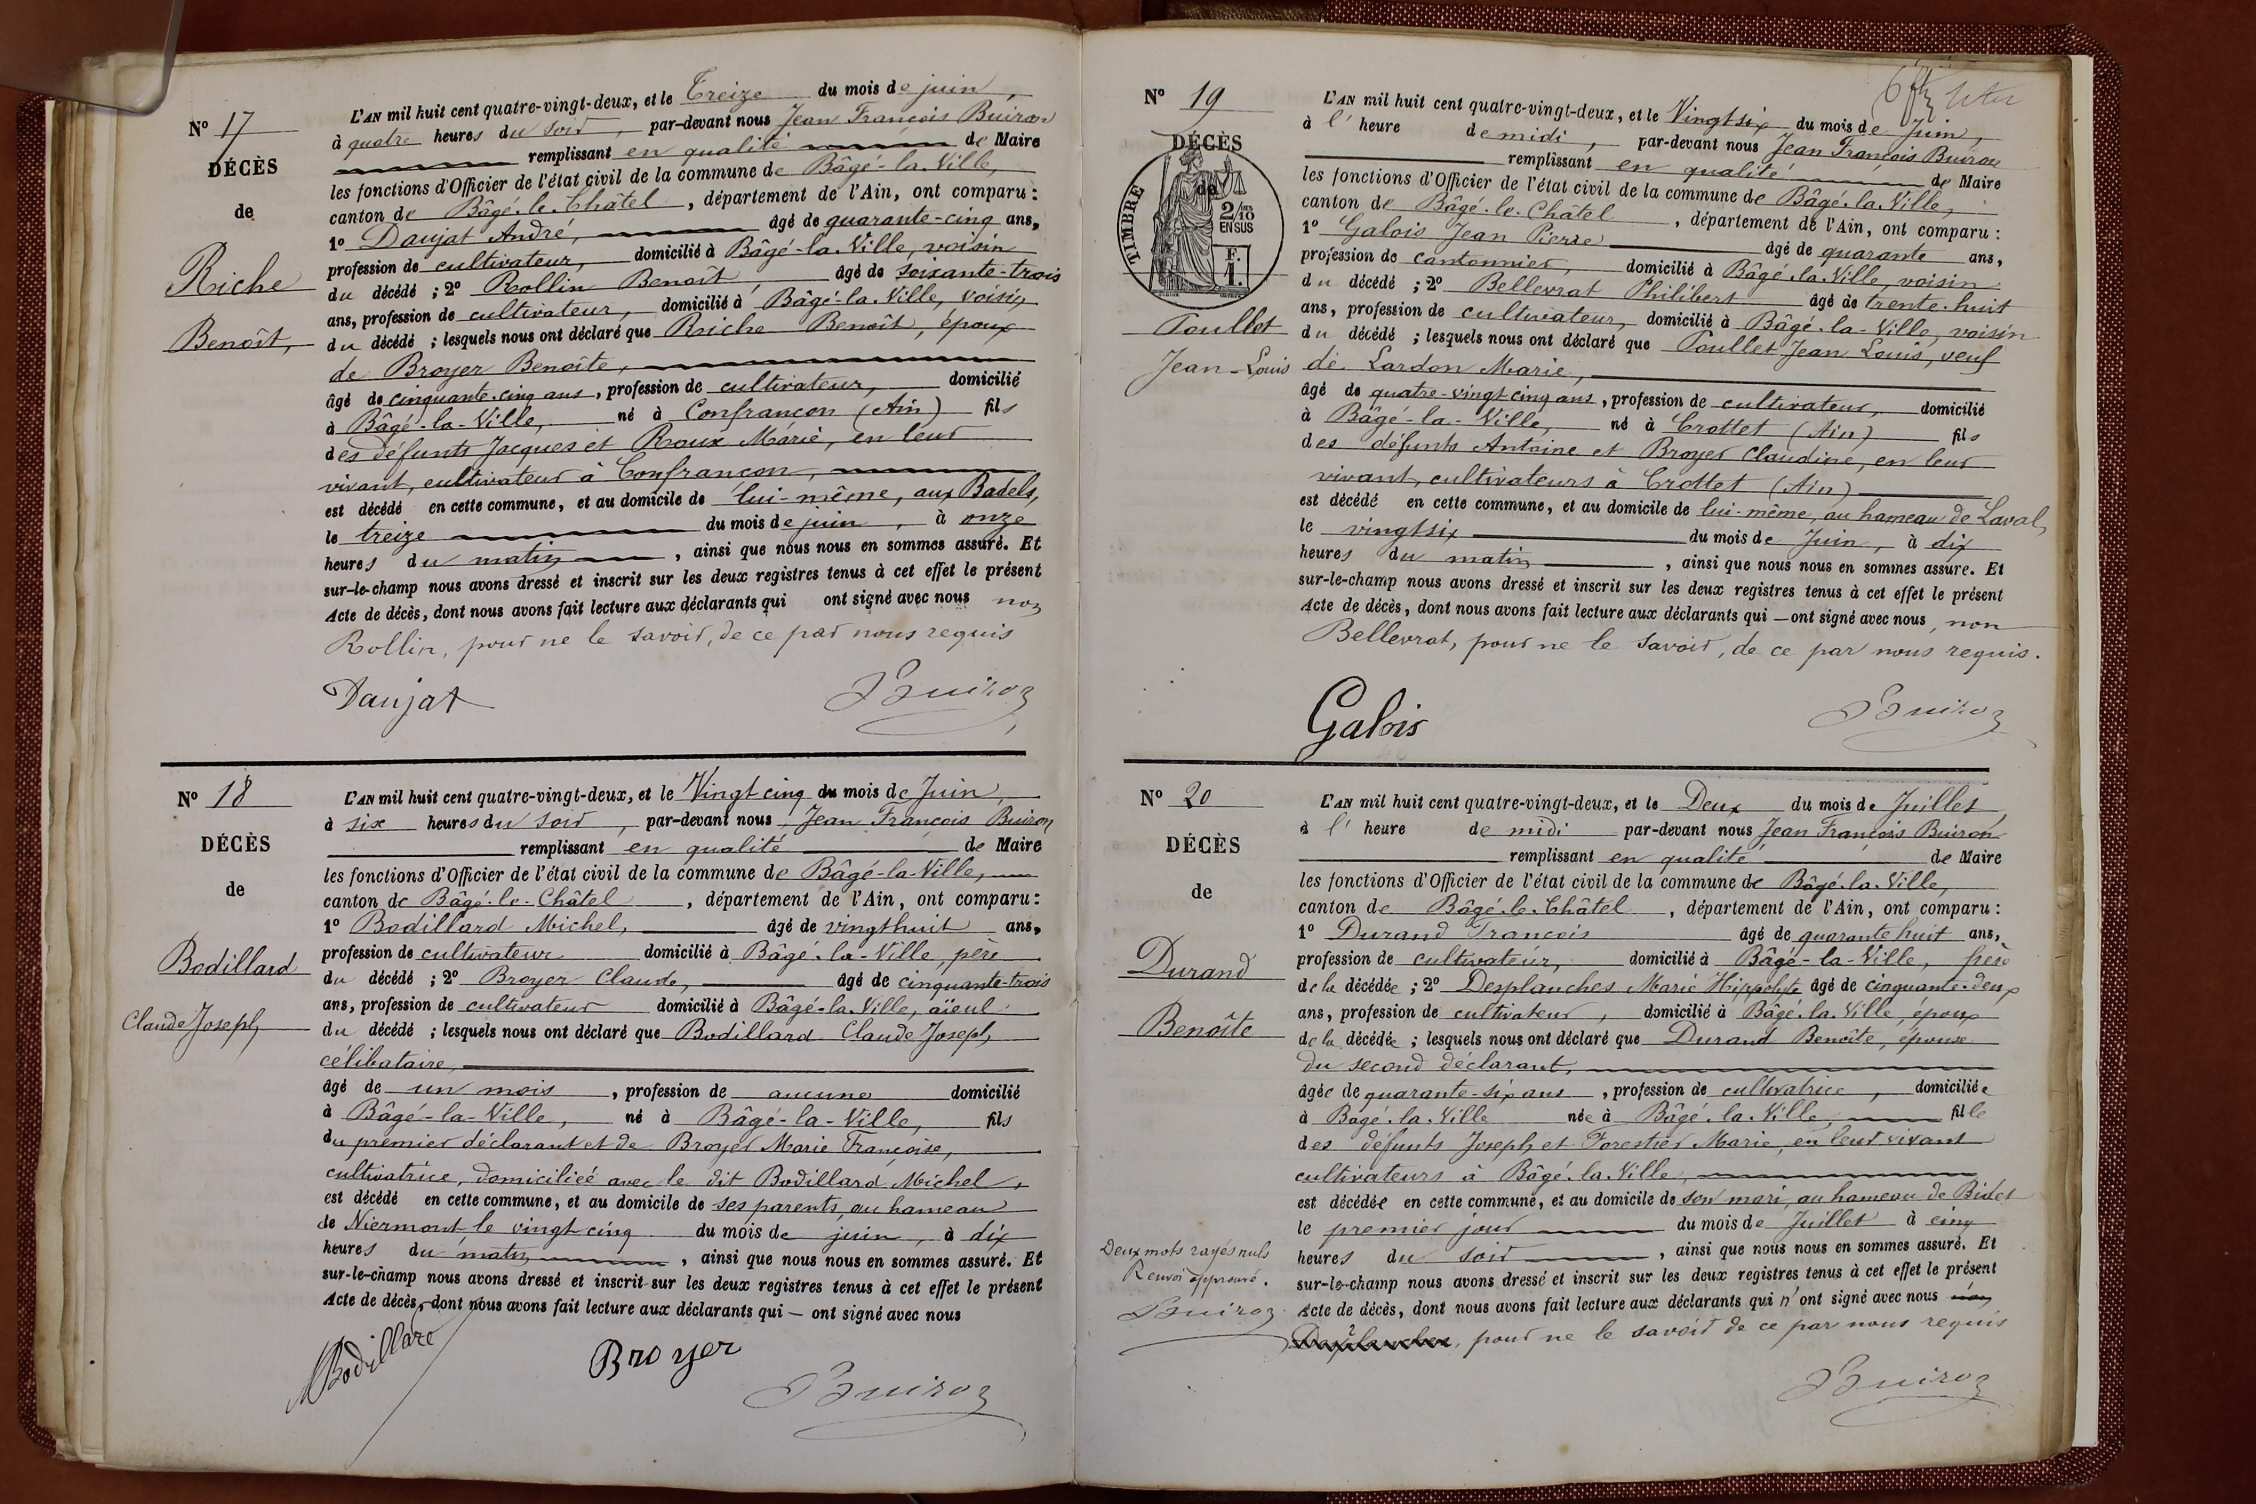 N° 17
DÉCÈS
de
Riche
Benoît,
L'AN mil huit cent quatre-vingt-deux, et le Treize du mois de juin,
à quatre heures du soir, par-devant nous Jean François Buiron
remplissant en qualité de Maire
les fonctions d'Officier de l'état civil de la commune de Bâgé-la-Ville,
canton de Bâgé-le-Châtel, département de l'Ain, ont comparu :
1° Daujat André, âgé de quarante-cinq ans,
profession de cultivateur, domicilié à Bâgé-la-Ville, voisin
du décédé ; 2° Rollin Benoît âgé de soixante-trois
ans, profession de cultivateur, domicilié à Bâgé-la-Ville, voisin
du décédé ; lesquels nous ont déclaré que Riche Benoît, époux
de Broyer Benoîte,
âgé de cinquante-cinq ans, profession de cultivateur, domicilié
à Bâgé-la-Ville, né à Confrançon (Ain) fils
des défunts Jacques et Roux Marie, en leur
vivant, cultivateur à Confrançon,
est décédé en cette commune, et au domicile de lui-même, aux Badels,
le treize du mois de juin, à onze
heures du matin, ainsi que nous nous en sommes assuré. Et
sur-le-champ nous avons dressé et inscrit sur les deux registres tenus à cet effet le présent
Acte de décès, dont nous avons fait lecture aux déclarants qui ont signé avec nous non
Rollin, pour ne le savoir, de ce par nous requis
Daujat Buiron
N° 18
DÉCÈS
de
Bodillard
Claude Joseph
L'AN mil huit cent quatre-vingt-deux, et le Vingt cinq du mois de Juin,
à six heures du soir, par-devant nous Jean François Buiron
remplissant en qualité de Maire
les fonctions d'Officier de l'état civil de la commune de Bâgé-la-Ville,
canton de Bâgé-le-Châtel, département de l'Ain, ont comparu :
1° Bodillard Michel, âgé de vingt huit ans,
profession de cultivateur domicilié à Bâgé-la-Ville, père
du décédé ; 2° Broyer Claude, âgé de cinquante-trois
ans, profession de cultivateur domicilié à Bâgé-la-Ville, aïeul
du décédé ; lesquels nous ont déclaré que Bodillard Claude Joseph,
célibataire,
âgé de un mois, profession de aucune domicilié
à Bâgé-la-Ville, né à Bâgé-la-Ville, fils
du premier déclarant et de Broyer Marie Françoise,
cultivatrice, domiciliée avec le dit Bodillard Michel,
est décédé en cette commune, et au domicile de ses parents, au hameau
de Niermont le vingt cinq du mois de juin, à dix
heures du matin, ainsi que nous nous en sommes assuré. Et
sur-le-champ nous avons dressé et inscrit sur les deux registres tenus à cet effet le présent
Acte de décès, dont nous avons fait lecture aux déclarants qui — ont signé avec nous
MBodillard Broyer Buiron
N° 19
DÉCÈS
de
TIMBRE
2/10 EN SUS
F. 1.
Poullet
Jean-Louis
L'AN mil huit cent quatre-vingt-deux, et le Vingt six du mois de Juin,
à l' heure de midi, par-devant nous Jean François Buiron
remplissant en qualité de Maire
les fonctions d'Officier de l'état civil de la commune de Bâgé-la-Ville,
canton de Bâgé-le-Châtel, département de l'Ain, ont comparu :
1° Galois Jean Pierre âgé de quarante ans,
profession de cantonnier, domicilié à Bâgé-la-Ville, voisin
du décédé ; 2° Bellevrat Philibert âgé de trente-huit
ans, profession de cultivateur, domicilié à Bâgé-la-Ville, voisin
du décédé ; lesquels nous ont déclaré que Poullet Jean Louis, veuf
de Lardon Marie,
âgé de quatre-vingt-cinq ans, profession de cultivateur, domicilié
à Bâgé-la-Ville, né à Crottet (Ain) fils
des défunts Antoine et Broyer Claudine, en leur
vivant, cultivateurs à Crottet (Ain)
est décédé en cette commune, et au domicile de lui-même, au hameau de Laval,
le vingt six du mois de Juin, à dix
heures du matin, ainsi que nous nous en sommes assuré. Et
sur-le-champ nous avons dressé et inscrit sur les deux registres tenus à cet effet le présent
Acte de décès, dont nous avons fait lecture aux déclarants qui — ont signé avec nous, non
Bellevrat, pour ne le savoir, de ce par nous requis.
Galois Buiron
N° 20
DÉCÈS
de
Durand
Benoîte
L'AN mil huit cent quatre-vingt-deux, et le Deux du mois de Juillet,
à l' heure de midi par-devant nous Jean François Buiron
remplissant en qualité de Maire
les fonctions d'Officier de l'état civil de la commune de Bâgé-la-Ville,
canton de Bâgé-le-Châtel, département de l'Ain, ont comparu :
1° Durand François âgé de quarante huit ans,
profession de cultivateur, domicilié à Bâgé-la-Ville, frère
de la décédée ; 2° Desplanches Marie Hippolyte âgé de cinquante-deux
ans, profession de cultivateur, domicilié à Bâgé-la-Ville, époux
de la décédée ; lesquels nous ont déclaré que Durand Benoîte, épouse
du second déclarant,
âgée de quarante-six ans, profession de cultivatrice, domiciliée
à Bâgé-la-Ville née à Bâgé-la-Ville, fille
des défunts Joseph et Forestier Marie, en leur vivant
cultivateurs à Bâgé-la-Ville,
est décédée en cette commune, et au domicile de son mari, au hameau de Bidet
le premier jour du mois de Juillet à cinq
heures du soir, ainsi que nous nous en sommes assuré. Et
sur-le-champ nous avons dressé et inscrit sur les deux registres tenus à cet effet le présent
Acte de décès, dont nous avons fait lecture aux déclarants qui n'ont signé avec nous non
Desplanches, pour ne le savoir de ce par nous requis
Deux mots rayés nuls
Renvoi approuvé.
Buiron
Buiron